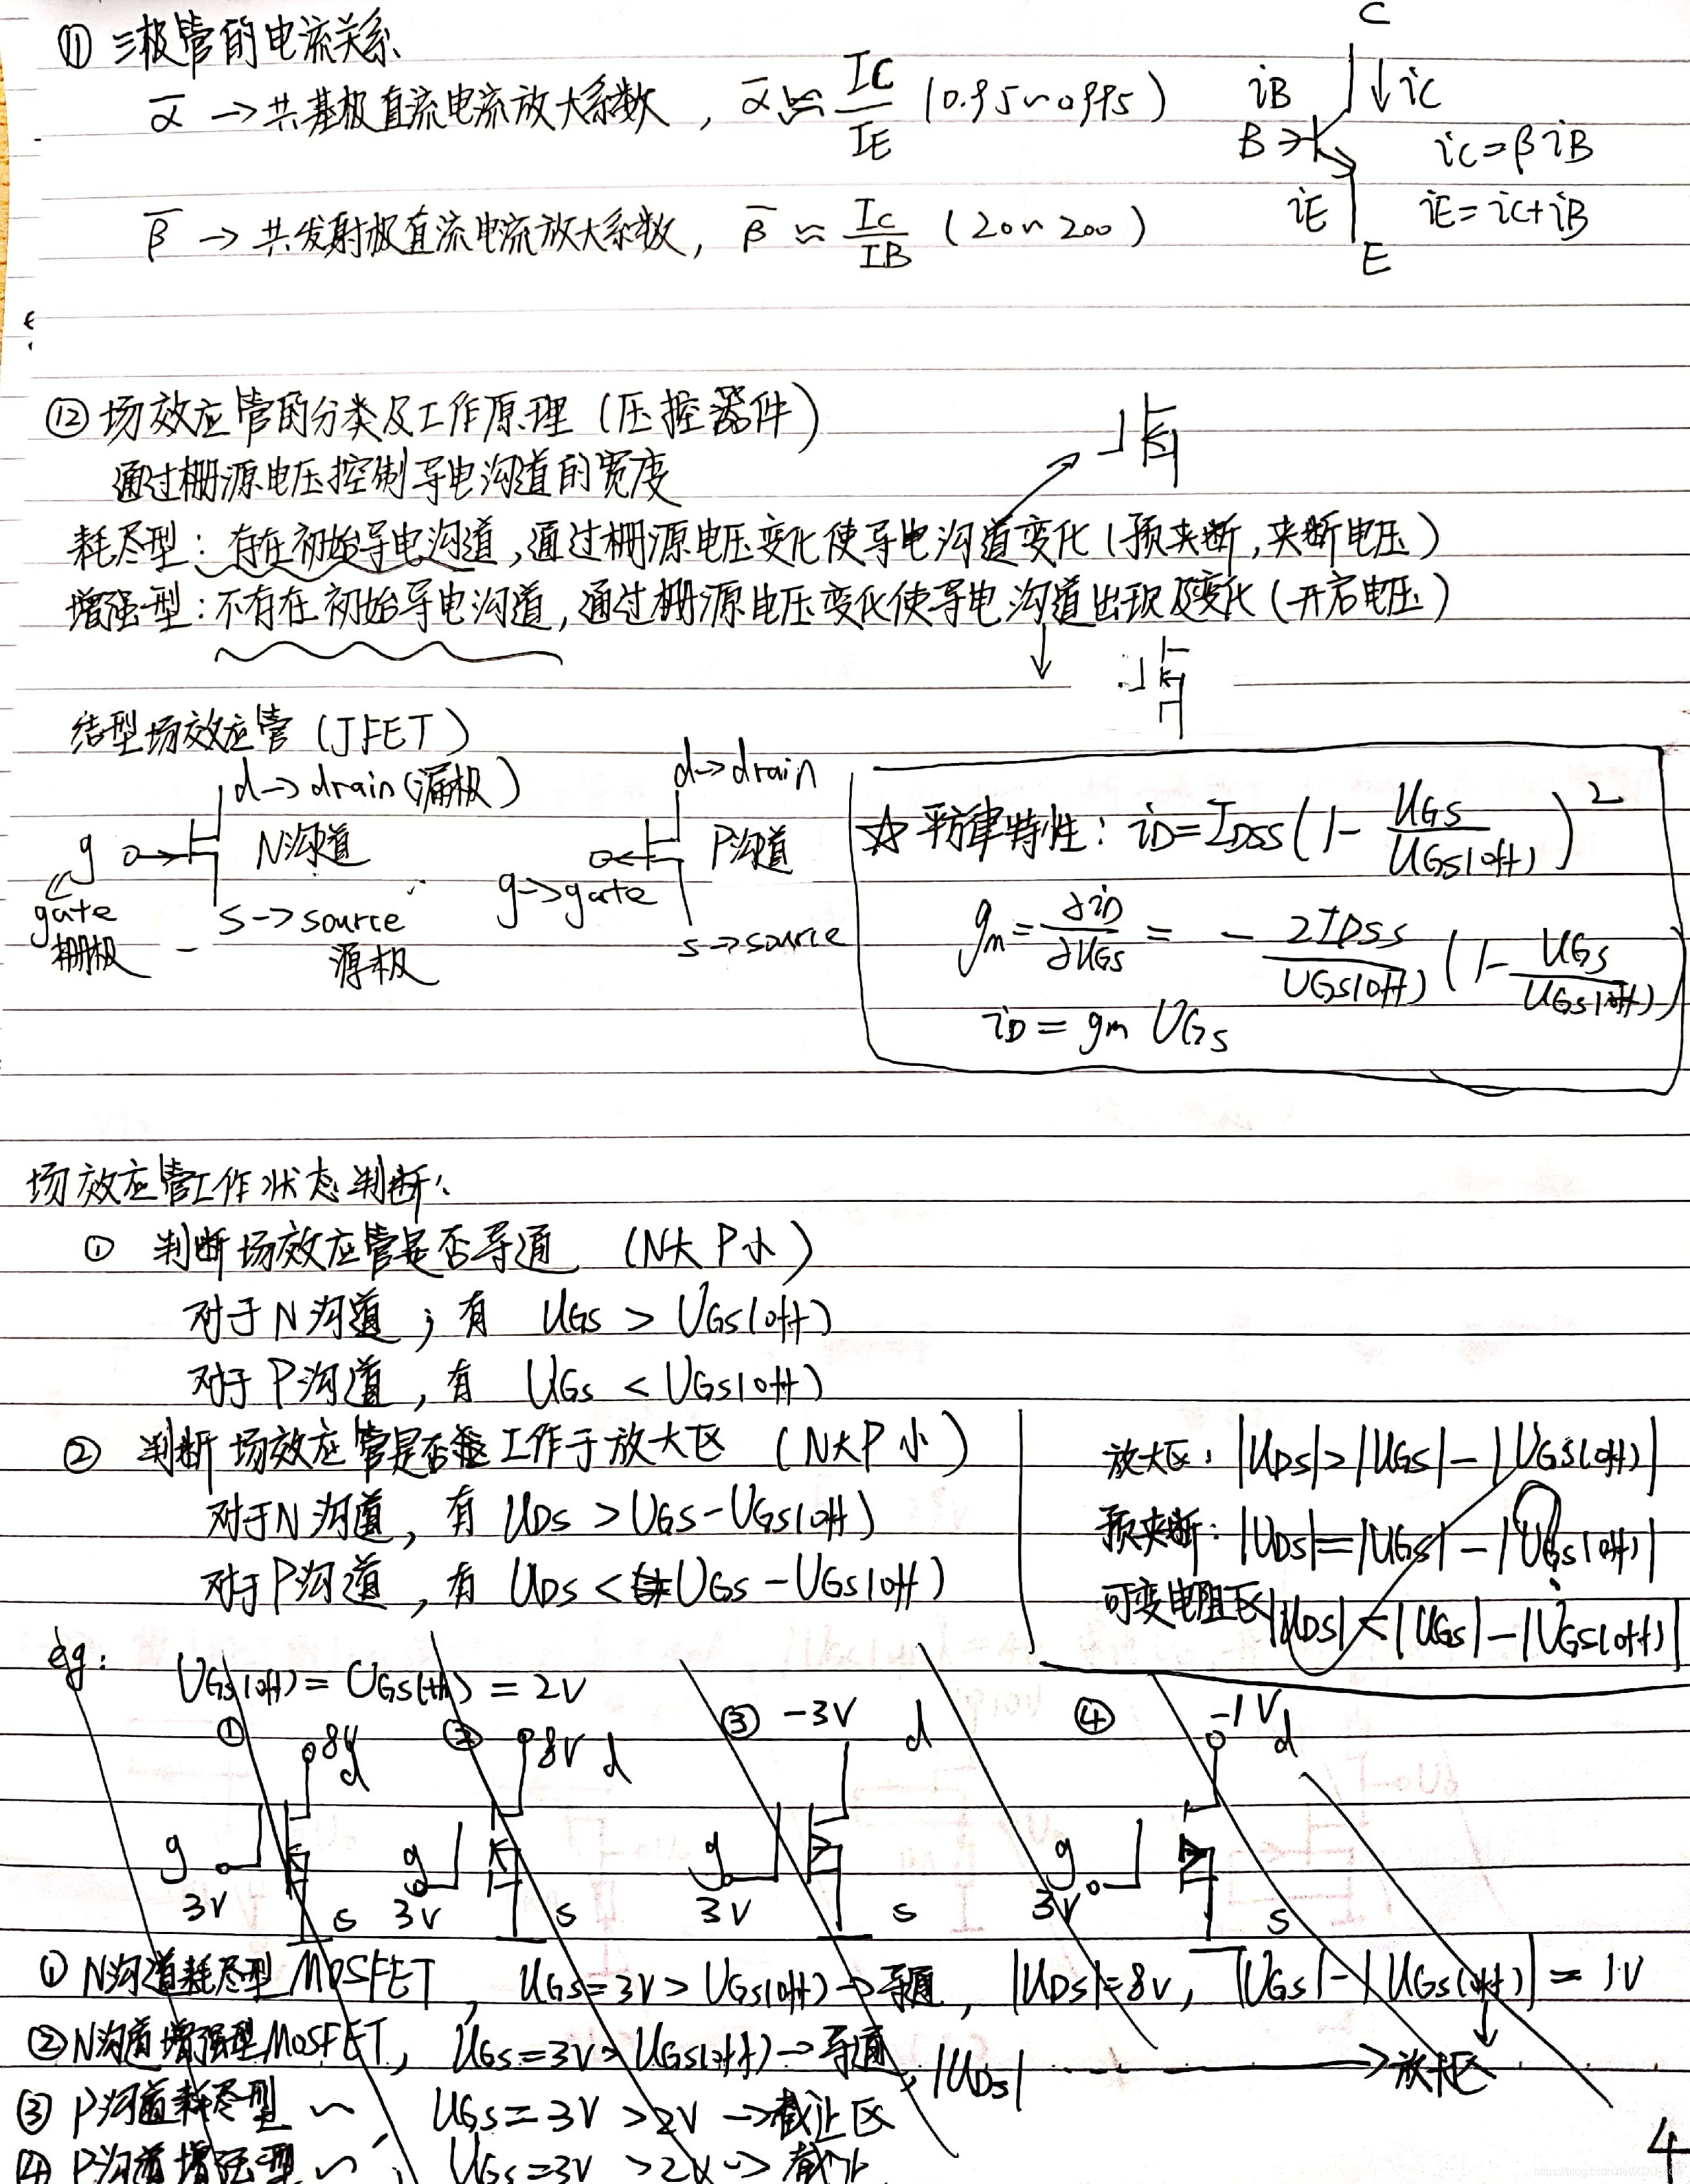 ⑪ 三极管的电流关系
ᾱ → 共基极直流电流放大系数, ᾱ ≈ IC/IE (0.95~0.995)
β̄ → 共发射极直流电流放大系数, β̄ ≈ IC/IB (20~200)
C
iB ↓iC
B iC=βiB
iE iE=iC+iB
E
⑫ 场效应管的分类及工作原理 (压控器件)
通过栅源电压控制导电沟道的宽度
耗尽型: 存在初始导电沟道, 通过栅源电压变化使导电沟道变化 (预夹断, 夹断电压)
增强型: 不存在初始导电沟道, 通过栅源电压变化使导电沟道出现及变化 (开启电压)
结型场效应管 (JFET)
d→drain(漏极)
g N沟道
gate
栅极
s→source
源极
d→drain
P沟道
g→gate
s→source
☆ 平方律特性: iD=IDSS(1-UGS/UGS(off))²
gm=∂iD/∂UGS = - 2IDSS/UGS(off) (1-UGS/UGS(off))
iD = gm UGS
场效应管工作状态判断:
① 判断场效应管是否导通 (N大P小)
对于N沟道, 有 UGS > UGS(off)
对于P沟道, 有 UGS < UGS(off)
② 判断场效应管是否 工作于放大区 (N大P小)
对于N沟道, 有 UDS > UGS-UGS(off)
对于P沟道, 有 UDS < UGS-UGS(off)
放大区: |UDS|>|UGS|-|UGS(off)|
预夹断: |UDS|=|UGS|-|UGS(off)|
可变电阻区|UDS|<|UGS|-|UGS(off)|
eg: UGS(off)=UGS(th)=2V
① 8V d ② 8V d ③ -3V d ④ -1V d
g g g g
3V s 3V s 3V s 3V s
① N沟道耗尽型MOSFET, UGS=3V>UGS(off)→导通, |UDS|=8V, |UGS|-|UGS(off)|=1V
② N沟道增强型MOSFET, UGS=3V>UGS(off)→导通, |UDS| → 放大区
③ P沟道耗尽型 ~ UGS=3V >2V →截止区
④ P沟道增强型 ~, UGS=3V >2V → 截止
4